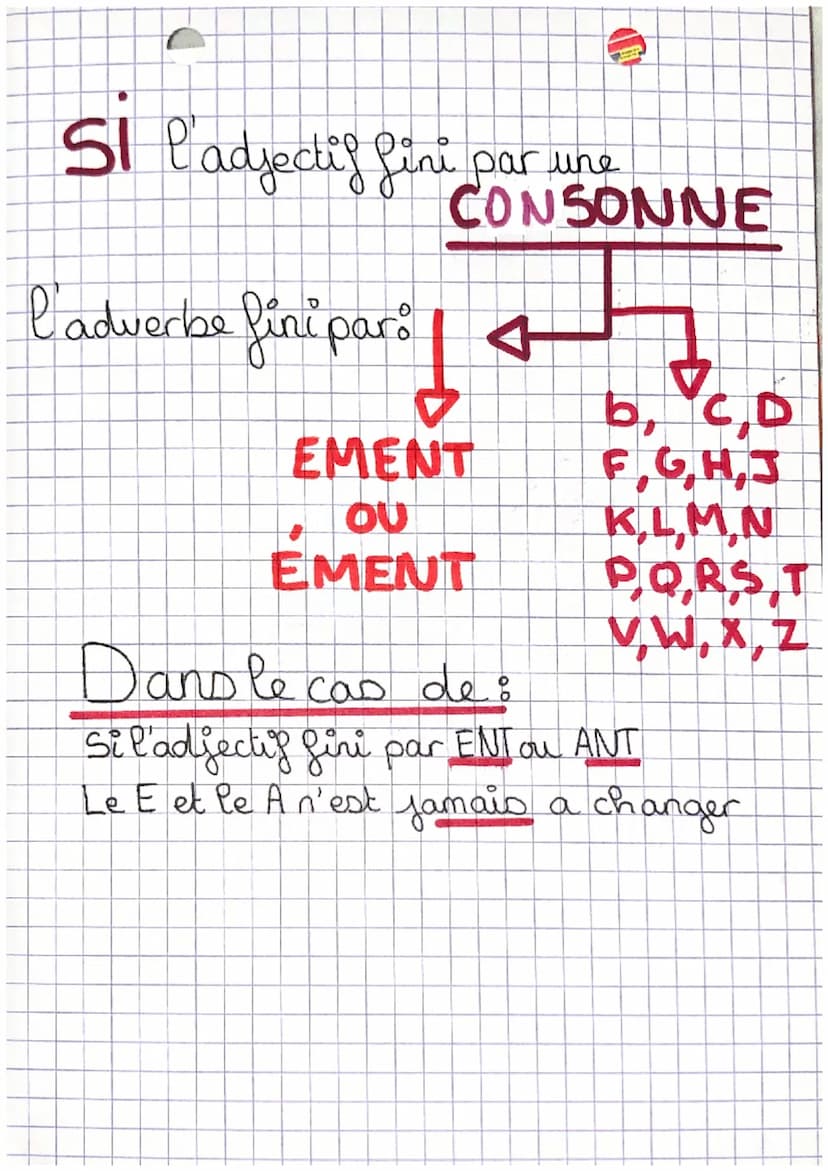 Si l'adjectif fini par une
CONSONNE
l'adverbe fini par :
EMENT
OU
ÉMENT
b, C, D
F, G, H, J
K, L, M, N
P, Q, R, S, T
V, W, X, Z
Dans le cas de :
Si l'adjectif fini par ENT ou ANT
Le E et le A n'est jamais a changer